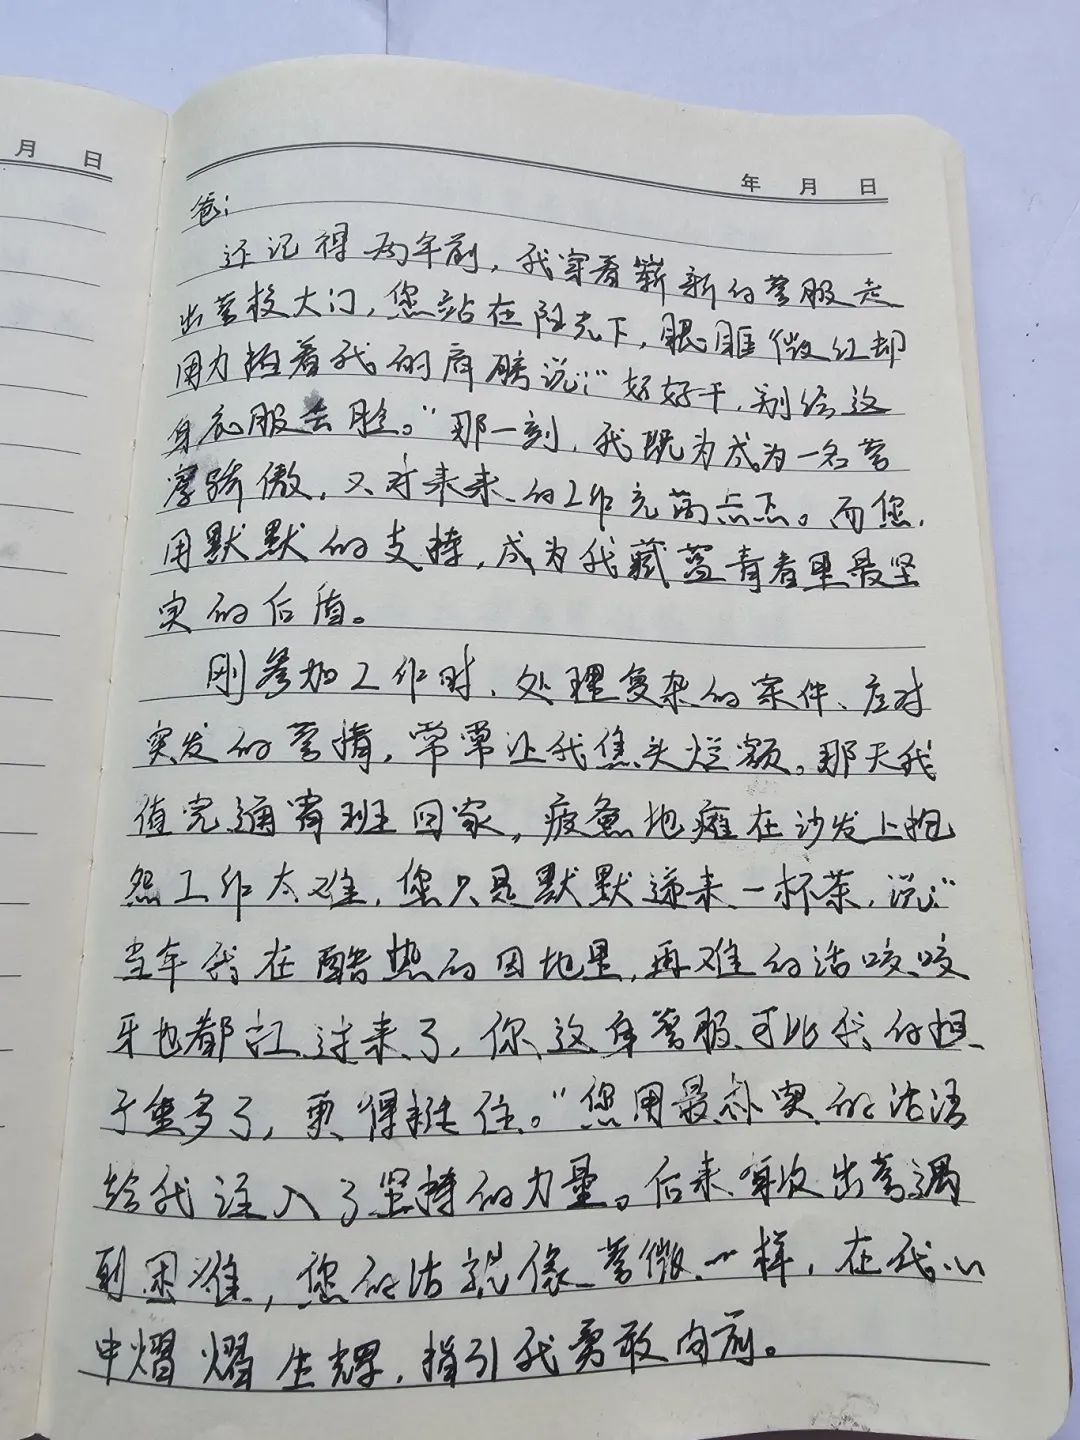 月 日
年 月 日
爸:
还记得两年前,我穿着崭新的警服走
出警校大门,您站在阳光下,眼眶微红却
用力拍着我的肩膀说:“好好干,别给这
身衣服丢脸。”那一刻,我既为成为一名警
察骄傲,又对未来的工作充满忐忑。而您,
用默默的支持,成为我藏蓝青春里最坚
实的后盾。
刚参加工作时,处理复杂的案件、应对
突发的警情,常常让我焦头烂额。那天我
值完通宵班回家,疲惫地瘫在沙发上抱
怨工作太难,您只是默默递来一杯茶,说:“
当年我在酷热的田地里,再难的活咬咬
牙也都扛过来了,你这身警服可比我的担
子重多了,更得挺住。”您用最朴实的话语
给我注入了坚持的力量。后来每次出警遇
到困难,您的话就像警徽一样,在我心
中熠熠生辉,指引我勇敢向前。